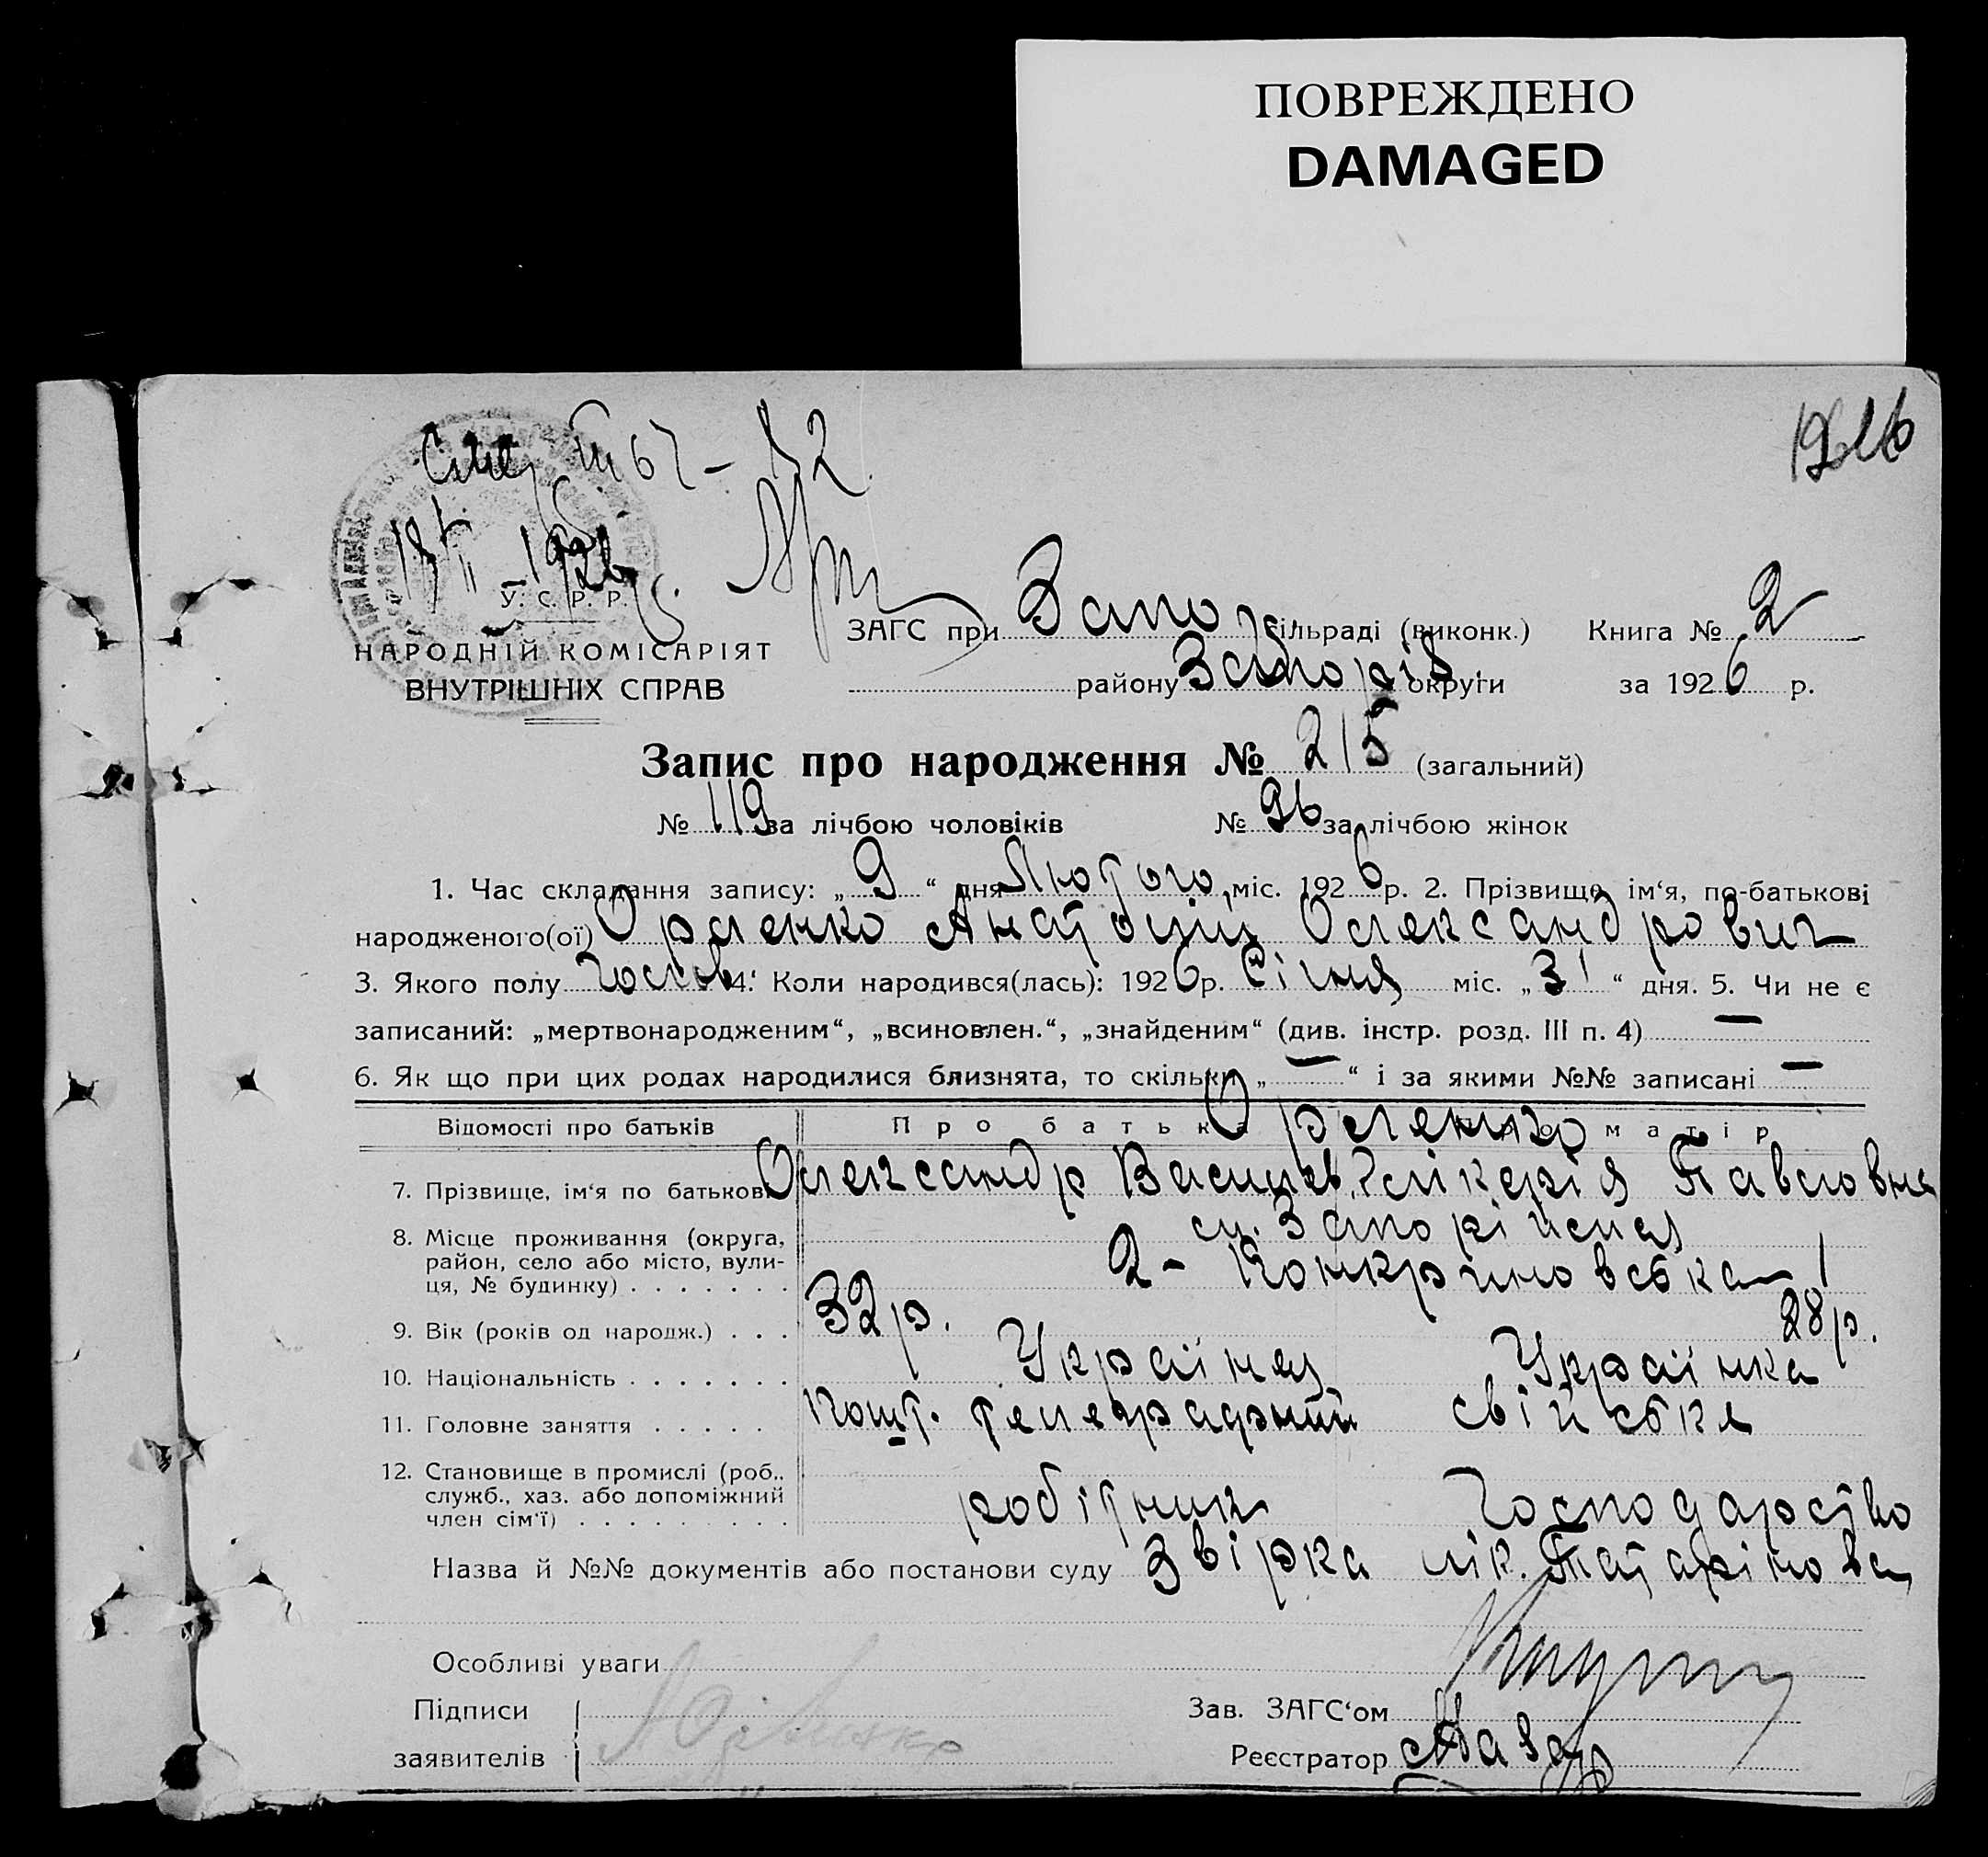 ПОВРЕЖДЕНО
DAMAGED
У. С. Р. Р.
НАРОДНІЙ КОМІСАРІЯТ
ВНУТРІШНІХ СПРАВ
ЗАГС при Запо сільраді (виконк.) Книга № 2
району Запоріз округи за 1926 р.
Запис про народження № 215 (загальний)
№ 119 за лічбою чоловіків № 96 за лічбою жінок
1. Час складання запису: „ 9 “ дня Лютого міс. 1926 р. 2. Прізвище, ім‘я, по-батькові
народженого(ої) Орленко Анатолій Олександрович
3. Якого полу чолов. 4. Коли народився(лась): 1926 р. Січня міс. „ 31 “ дня. 5. Чи не є
записаний: „мертвонародженим“, „всиновлен.“, „знайденим“ (див. інстр. розд. III п. 4) —
6. Як що при цих родах народилися близнята, то скільки „ — “ і за якими №№ записані —
Відомості про батьків Про батька Про матір
Орленко
7. Прізвище, ім‘я по батькові Олександр Васильов. Глікерія Павловна
8. Місце проживання (округа, район, село або місто, вулиця, № будинку) . . . . . . . м. Запоріжжя
2-
9. Вік (років од народж.) . . . 32 р. 28 р.
10. Національність . . . . . . . Українец Українка
11. Головне заняття . . . . . Пошт. телеграфний свійське
12. Становище в промислі (роб., служб., хаз. або допоміжний член сім‘ї) . . . . . . . . . робітник господарство
Назва й №№ документів або постанови суду Звірка лік. Татарінова
Особливі уваги
Підписи
заявителів
Зав. ЗАГС‘ом
Реєстратор